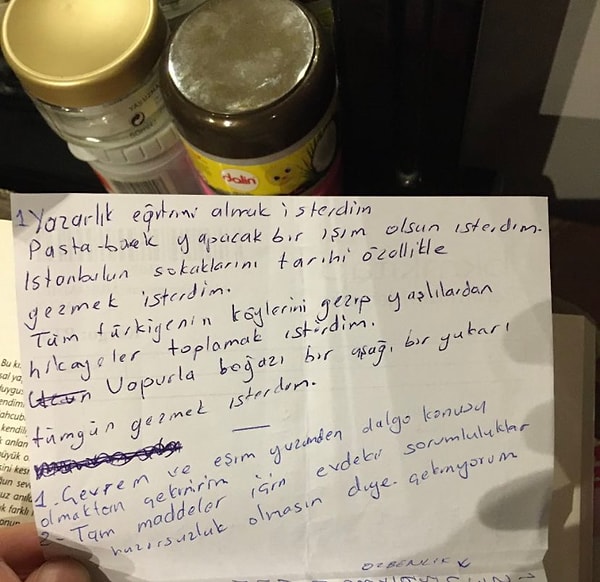 dalin
1 Yazarlık eğitimi almak isterdim
Pasta-börek yapacak bir işim olsun isterdim.
Istanbulun sokaklarını tarihi özellikle
gezmek isterdim.
Tüm türkiyenin köylerini gezip yaşlılardan
hikayeler toplamak isterdim.
Vapurla boğazı bir aşağı, bir yukarı
tümgün gezmek isterdim.
1. Çevrem ve eşim yüzünden dalga konusu
olmaktan çekinirim
2- Tüm maddeler için evdeki sorumluluklar
huzursuzluk olmasın diye. çekiniyorum